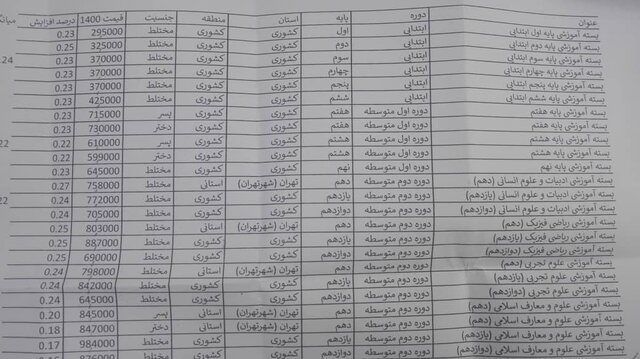 عنوان دوره پایه استان منطقه جنسیت قیمت 1400 درصد افزایش
بسته آموزشی پایه اول ابتدایی ابتدایی اول کشوری کشوری مختلط 295000 0.23
بسته آموزشی پایه دوم ابتدایی ابتدایی دوم کشوری کشوری مختلط 325000 0.25
بسته آموزشی پایه سوم ابتدایی ابتدایی سوم کشوری کشوری مختلط 370000 0.23
بسته آموزشی پایه چهارم ابتدایی ابتدایی چهارم کشوری کشوری مختلط 370000 0.23
بسته آموزشی پایه پنجم ابتدایی ابتدایی پنجم کشوری کشوری مختلط 370000 0.23
بسته آموزشی پایه ششم ابتدایی ابتدایی ششم کشوری کشوری مختلط 425000 0.23
بسته آموزشی پایه هفتم دوره اول متوسطه هفتم کشوری کشوری پسر 715000 0.23
بسته آموزشی پایه هفتم دوره اول متوسطه هفتم کشوری کشوری دختر 730000 0.23
بسته آموزشی پایه هشتم دوره اول متوسطه هشتم کشوری کشوری پسر 610000 0.22
بسته آموزشی پایه هشتم دوره اول متوسطه هشتم کشوری کشوری دختر 599000 0.22
بسته آموزشی پایه نهم دوره اول متوسطه نهم کشوری کشوری مختلط 645000 0.23
بسته آموزشی ادبیات و علوم انسانی (دهم) دوره دوم متوسطه دهم تهران (شهرتهران) استانی مختلط 758000 0.27
بسته آموزشی ادبیات و علوم انسانی (یازدهم) دوره دوم متوسطه یازدهم کشوری کشوری مختلط 772000 0.24
بسته آموزشی ادبیات و علوم انسانی (دوازدهم) دوره دوم متوسطه دوازدهم کشوری کشوری مختلط 705000 0.24
بسته آموزشی ریاضی فیزیک (دهم) دوره دوم متوسطه دهم تهران (شهرتهران) استانی مختلط 803000 0.25
بسته آموزشی ریاضی فیزیک (یازدهم) دوره دوم متوسطه یازدهم کشوری کشوری مختلط 887000 0.25
بسته آموزشی ریاضی فیزیک (دوازدهم) دوره دوم متوسطه دوازدهم کشوری کشوری مختلط 690000 0.25
بسته آموزشی علوم تجربی (دهم) دوره دوم متوسطه دهم تهران (شهرتهران) استانی مختلط 798000 0.24
بسته آموزشی علوم تجربی (یازدهم) دوره دوم متوسطه یازدهم کشوری کشوری مختلط 842000 0.24
بسته آموزشی علوم تجربی (دوازدهم) دوره دوم متوسطه دوازدهم کشوری کشوری مختلط 645000 0.24
بسته آموزشی علوم و معارف اسلامی (دهم) دوره دوم متوسطه دهم تهران (شهرتهران) استانی پسر 845000 0.20
بسته آموزشی علوم و معارف اسلامی (دهم) دوره دوم متوسطه دهم تهران (شهرتهران) استانی دختر 847000 0.18
بسته آموزشی علوم و معارف اسلامی (یازدهم) دوره دوم متوسطه یازدهم کشوری کشوری مختلط 984000 0.17
بسته آموزشی علوم و معارف اسلامی (دوازدهم) دوره دوم متوسطه دوازدهم کشوری کشوری مختلط 0.16